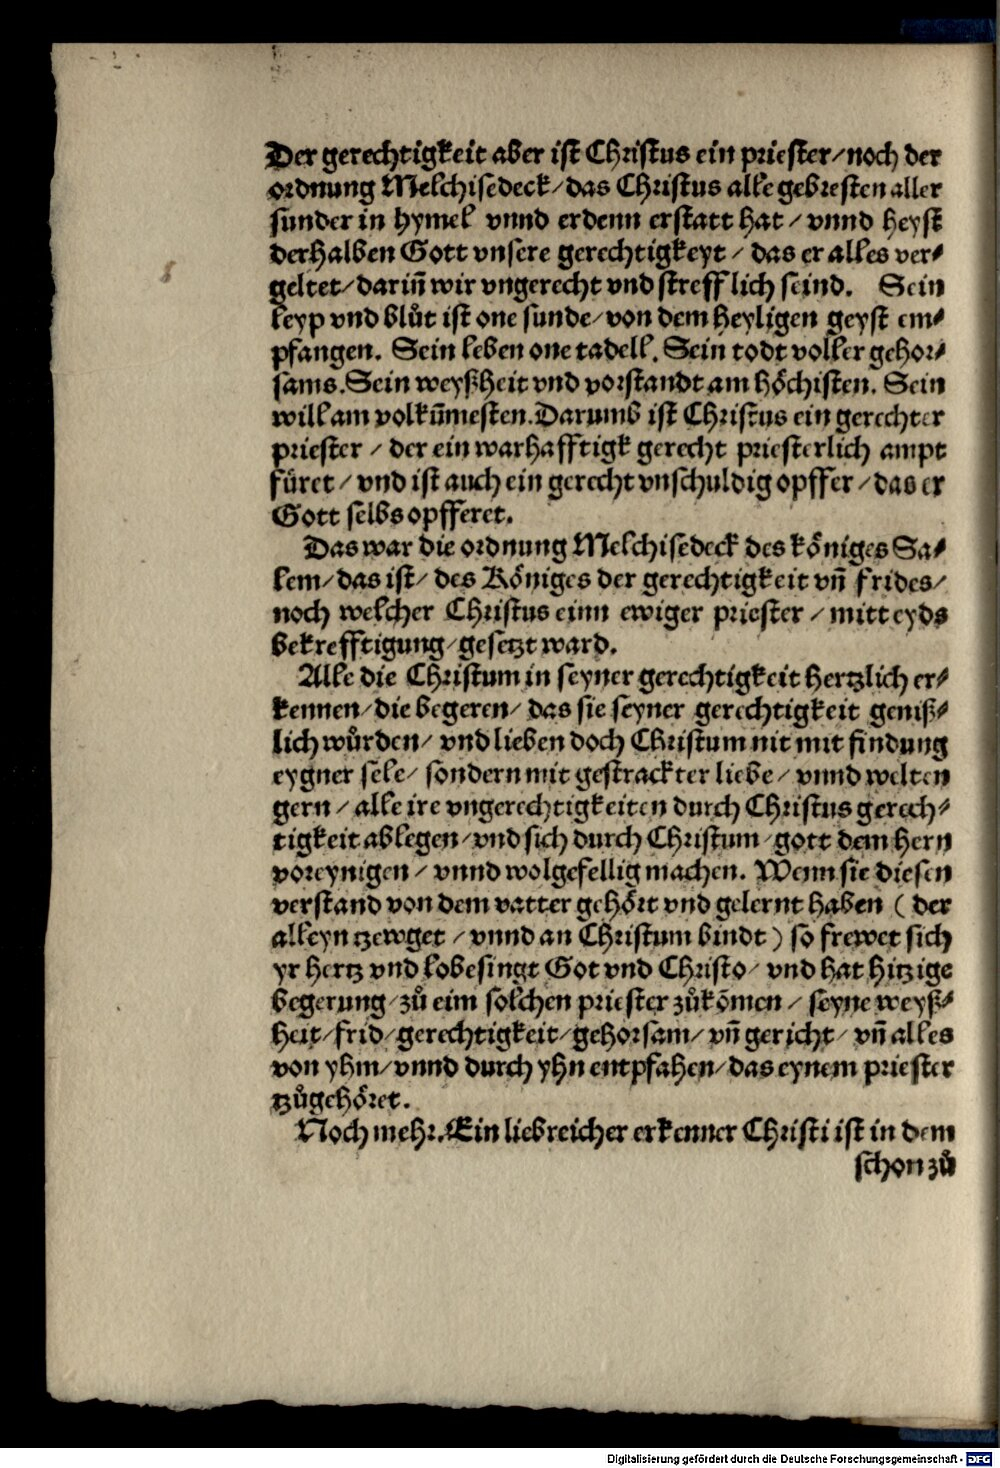 Der gerechtigkeit aber ist Christus ein priester/noch der
ordnung Melchisedeck/das Christus alle gebresten aller
sunder in hymel vnnd erdenn erstatt hat/vnnd heyst
derhalben Gott vnsere gerechtigkeyt/das er alles ver⸗
geltet/dariñ wir vngerecht vnd strefflich seind. Sein
leyp vnd blůt ist one sunde/von dem heyligen geyst em⸗
pfangen. Sein leben one tadell. Sein todt voller gehor⸗
sams. Sein weyßheit vnd vorstandt am hőchisten. Sein
will am volkũmesten. Darumb ist Christus ein gerechter
priester/der ein warhafftigk gerecht priesterlich ampt
fűret/vnd ist auch ein gerecht vnschuldig opffer/das er
Gott selbs opfferet.
Das war die ordnung Melchisedeck des kőniges Sa⸗
lem/das ist/des Kőniges der gerechtigkeit vñ frides/
noch welcher Christus einn ewiger priester/mitt eyds
bekrefftigung/gesetzt ward.
Alle die Christum in seyner gerechtigkeit hertzlich er⸗
kennen/die begeren/das sie seyner gerechtigkeit geniß⸗
lich wűrden/vnd lieben doch Christum nit mit findung
eygner sele/sondern mit gestrackter liebe/vnnd welten
gern/alle ire vngerechtigkeiten durch Christus gerech⸗
tigkeit ablegen/vnd sich durch Christum/gott dem hern
voreynigen/vnnd wolgefellig machen. Wenn sie diesen
verstand von dem vatter gehőrt vnd gelernt haben (der
alleyn tzewget/vnnd an Christum bindt) so frewet sich
yr hertz vnd lobesingt Got vnd Christo/vnd hat hitzige
begerung/zů eim solchen priester zůkõmen/seyne weyß⸗
heit/frid/gerechtigkeit/gehorsam/vñ gericht/vñ alles
von yhm/vnnd durch yhn entpfahen/das eynem priester
tzůgehőret.
Noch mehr. Ein liebreicher erkenner Christi ist in dem
schon zů
Digitalisierung gefördert durch die Deutsche Forschungsgemeinschaft - DFG